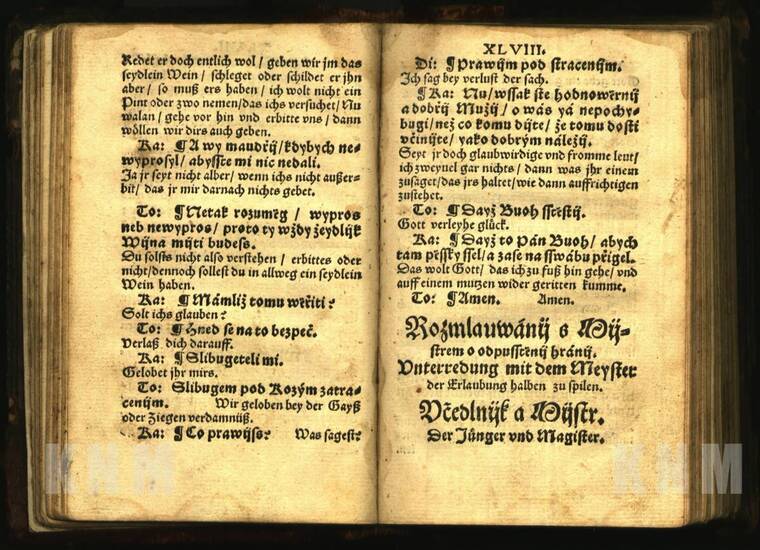 Redet er doch entlich wol / geben wir jm das
seydlein Wein / schleget oder schildet er jhn
aber / so muß ers haben / ich wolt nicht ein
Pint oder zwo nemen / das ichs versuchet / Nu
walan / gehe vor hin vnd erbitte vns / dann
wöllen wir dirs auch geben.
Ka: ¶ A wy maudřij / kdybych ne-
wyprosyl / abysste mi nic nedali.
Ja jr seyt nicht alber / wenn ichs nicht außer-
bit / das jr mir darnach nichts gebet.
To: ¶ Netak rozuměg / wypros
neb newypros / proto ty wždy žeydlijk
Wijna mijti budess.
Du solsts nicht also verstehen / erbittes oder
nicht / dennoch sollest du in allweg ein seydlein
Wein haben.
Ka: ¶ Mámliž tomu wěřiti?
Solt ichs glauben?
To: ¶ Hned se na to bezpeč.
Verlaß dich darauff.
Ka: ¶ Slibugeteli mi.
Gelobet jhr mirs.
To: Slibugem pod Kozým zatra-
cenijm. Wir geloben bey der Gayß
oder Ziegen verdamnüß.
Ka: ¶ Co prawijss? Was sagest?
XLVIII.
Di: ¶ Prawijm pod stracenijm.
Ich sag bey verlust der sach.
¶ Ka: Nu / wssak ste hodnowěrnij
a dobřij Mužij / o wás yá nepochy-
bugi / než co komu dijte / že tomu dosti
včinijte / yako dobrým náležij.
Seyt jr doch glaubwirdige vnd fromme leut /
ich zweyuel gar nichts / dann was jhr einem
zusaget / das jrs haltet / wie dann auffrichtigen
zustehet.
To: ¶ Dayž Buoh sstěstij.
Gott verleyhe glück.
Ka: ¶ Dayž to Pán Buoh / abych
tam pěssky ssel / a zase na sswábu přigel.
Das wolt Gott / das ich zu fuß hin gehe / vnd
auff einem mutzen wider geritten kumme.
To: ¶ Amen. Amen.
Rozmlauwánij s Mij-
strem o odpusstěnij hránij.
Vnterredung mit dem Meyster
der Erlaubung halben zu spilen.
Včedlnijk a Mijstr.
Der Jünger vnd Magister.
KNM
KNM